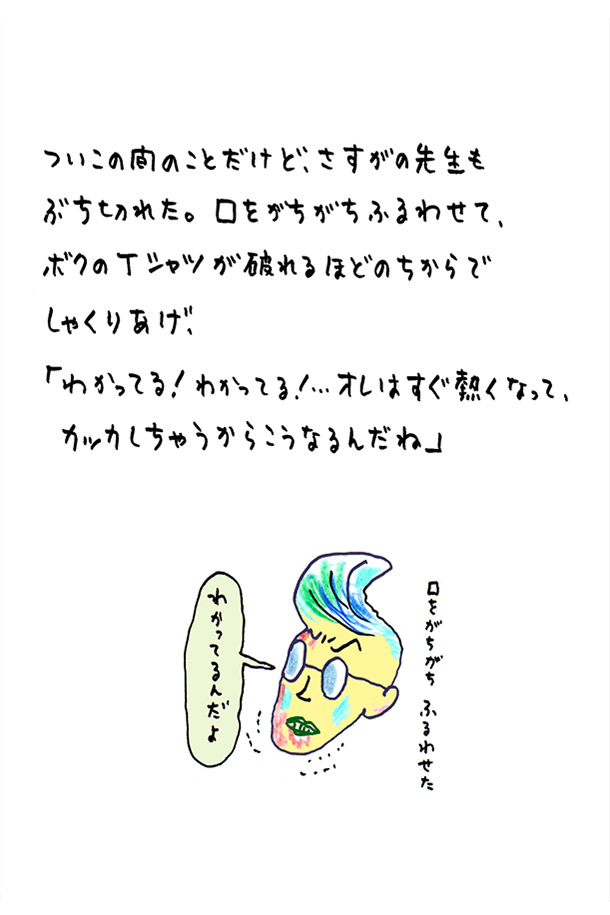 ついこの間のことだけど、さすがの先生も
ぶち切れた。口をがちがちふるわせて、
ボクのTシャツが破れるほどのちからで
しゃくりあげ、
「わかってる！わかってる！…オレはすぐ熱くなって、
カッカしちゃうからこうなるんだね」
口をがちがち ふるわせた
わかってるんだよ